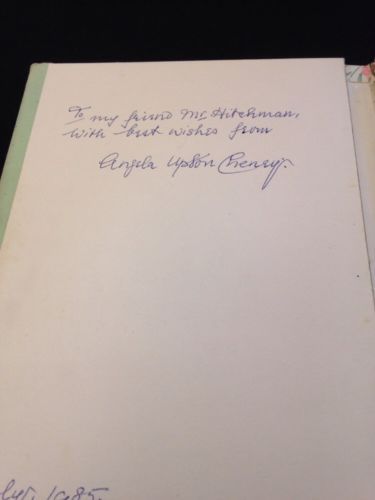 To my friend Mr Hitchman,
with best wishes from
Angela Upson Cheney.
1985.